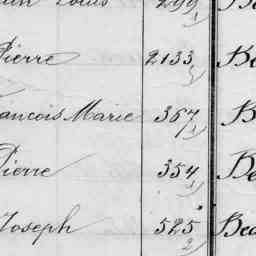 Louis 299
1
Pierre 2133
François Marie 367
1
Pierre 354
1
Joseph 525
2